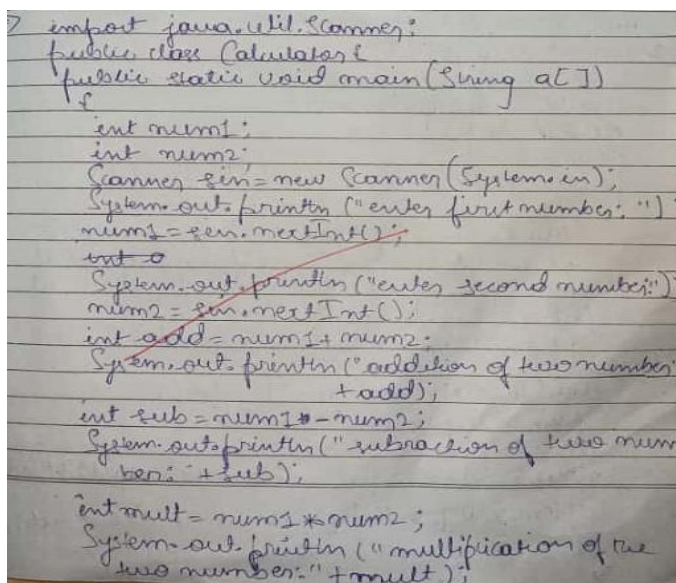 import java.util.Scanner;
public class Calculator{
public static void main(String a[])
{
int num1;
int num2;
Scanner sin = new Scanner(System.in);
System.out.println ("enter first number: ")
num1 = sin.nextInt();
int
System.out.println ("enter second number:")
num2 = sin.nextInt();
int add = num1 + num2;
System.out.println ("addition of two number
+add);
int sub = num1 - num2;
System.out.println (" subraction of two num
ber: "+sub);
int mult = num1 * num2 ;
System.out.println (" multiplication of the
two number: " + mult);